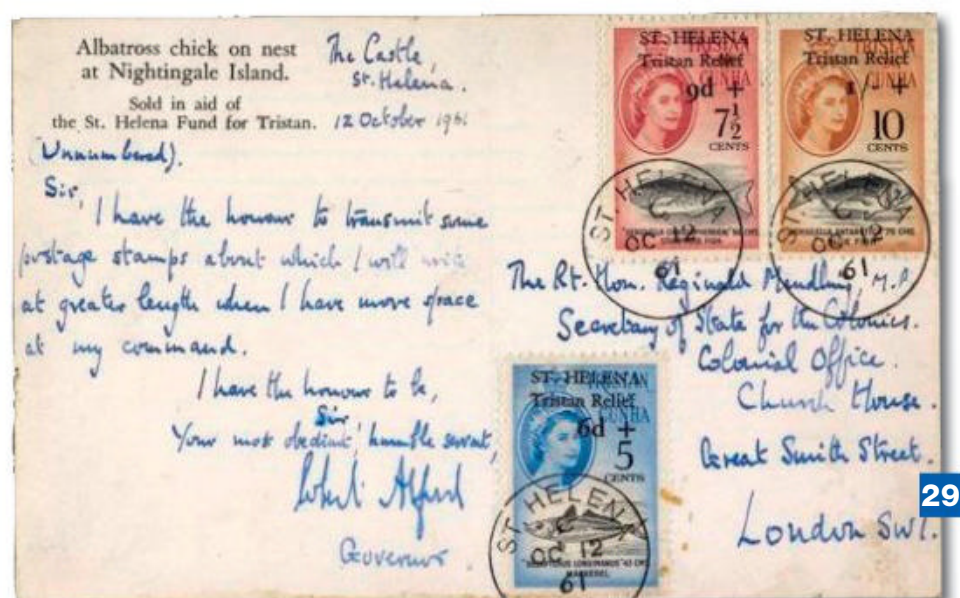 Albatross chick on nest
at Nightingale Island.
Sold in aid of
the St. Helena Fund for Tristan.
The Castle,
St. Helena.
12 October 1961
(Unnumbered).
Sir,
I have the honour to transmit some
postage stamps about which I will write
at greater length when I have more space
at my command.
I have the honour to be,
Sir
Your most obedient, humble servant,
Robert Alford
Governor
ST. HELENA
Tristan Relief
9d +
7½
CENTS
ST. HELENA
Tristan Relief
1/- +
10
CENTS
ST HELENA
C
OC 12
61
ST HELENA
C
OC 12
61
The Rt. Hon. Reginald Maudling, M.P.
Secretary of State for the Colonies.
Colonial Office.
Church House.
Great Smith Street.
London SW1.
ST. HELENA
Tristan Relief
6d +
5
CENTS
ST HELENA
C
OC 12
61
MACKEREL
29